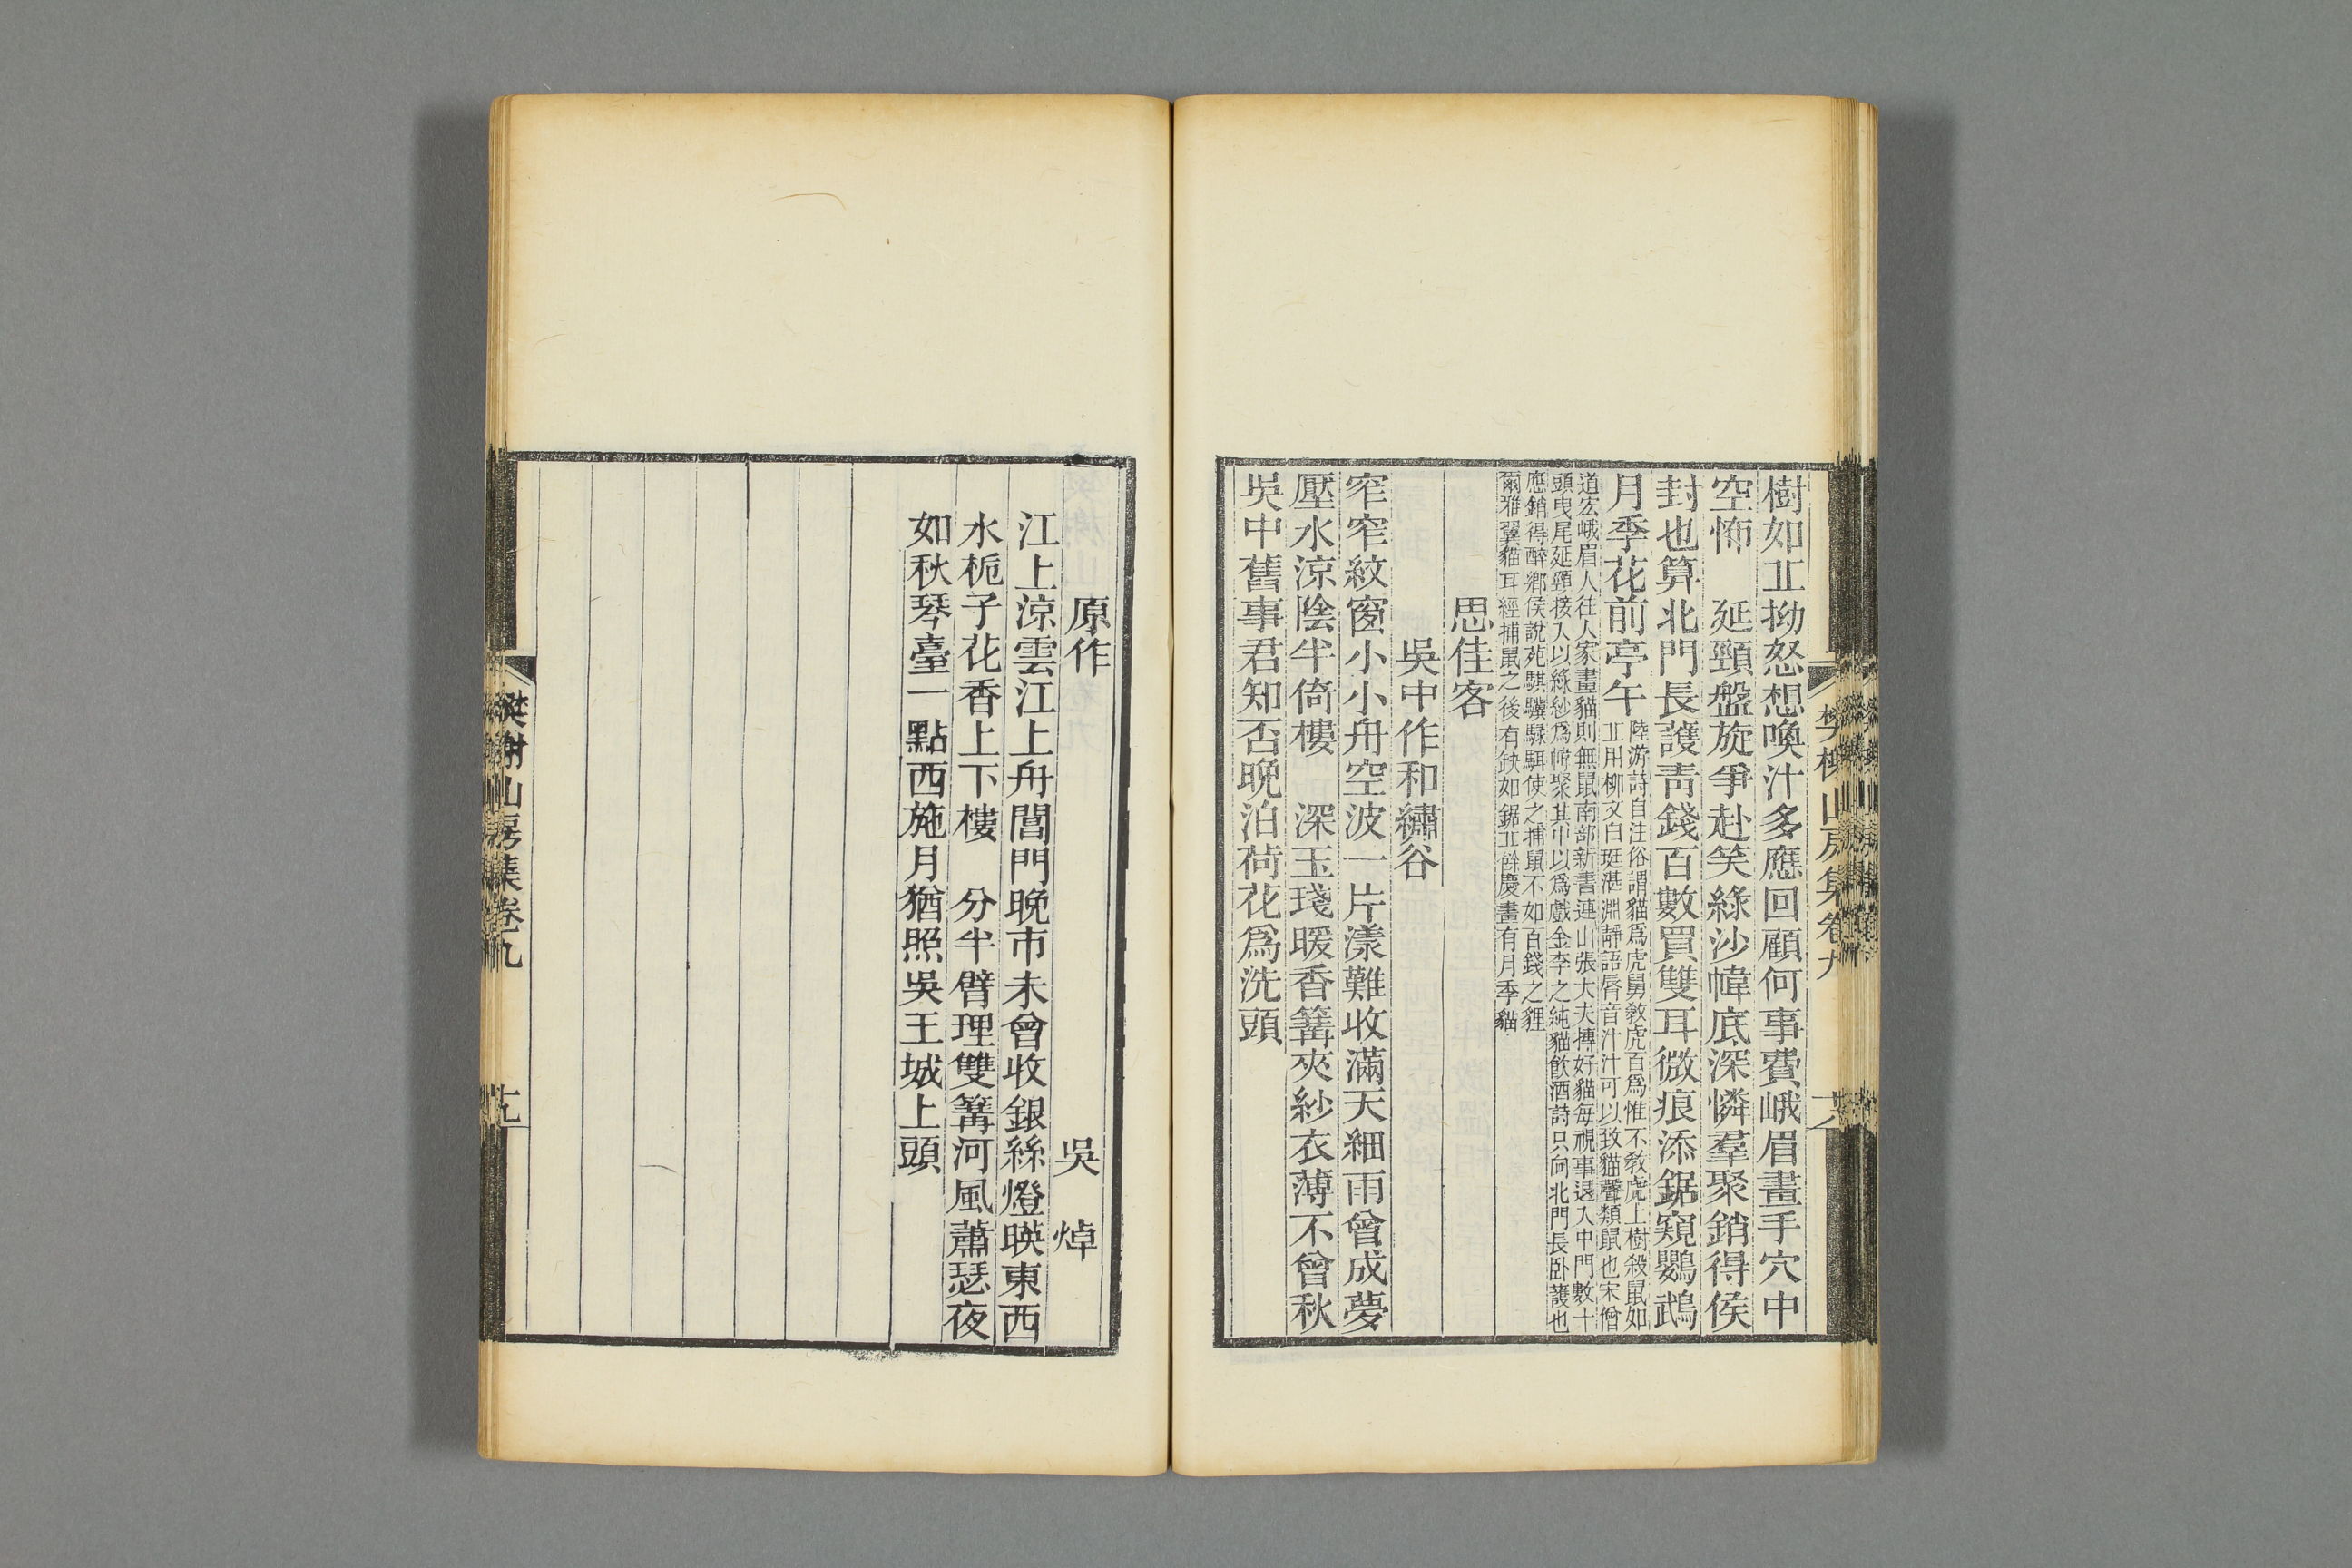 樹如㐀拗怒想喚汁多應回顧何事費峨眉畫手穴中
空怖　延頸盤旋爭赴笑綠沙幃底深憐羣聚銷得侯
封也算北門長護靑錢百數買雙耳微痕添鋸窺鸚鵡
月季花前亭午
陸游詩自注俗謂貓爲虎舅敎虎百爲惟不敎虎上樹殺鼠如
㐀用柳文白珽湛淵靜語脣音汁汁可以致貓聲類鼠也宋僧
道宏峨眉人往人家畫貓則無鼠南部新書連山張大夫摶好貓每視事退入中門數十
頭曳尾延頸接入以綠紗爲幃聚其中以爲戲金李之純貓飮酒詩只向北門長卧護也
應銷得醉鄕侯說苑騏驥騄駬使之捕鼠不如百錢之貍
爾雅翼貓耳經捕鼠之後有缺如鋸㐀餘慶畫有月季貓
思佳客
吳中作和繡谷
窄窄紋窗小小舟空波一片漾難收滿天細雨曾成夢
壓水涼陰半倚樓　深玉琖暖香篝夾紗衣薄不曾秋
吳中舊事君知否晚泊荷花爲洗頭
樊榭山房集卷九
原作　吳　焯
江上涼雲江上舟閶門晚市未曾收銀絲燈暎東西
水梔子花香上下樓　分半臂理雙篝河風蕭瑟夜
如秋琴臺一點西施月猶照吳王城上頭
樊榭山房集卷九